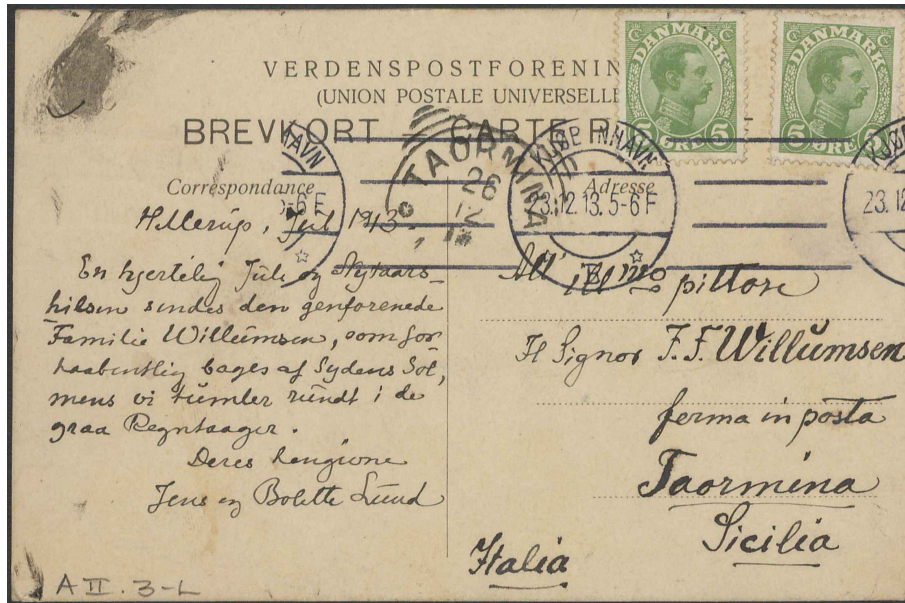 VERDENSPOSTFORENIN
(UNION POSTALE UNIVERSELLE
BREVKORT CARTE P
DANMARK
5 ØRE 5
DANMARK
5 ØRE 5
Correspondance
Adresse
KJØBENHAVN
23.12.13. 5-6 F
TAORMINA
26
12
HAVN
5-6 F
KJØB
23.12
Hellerup, Jul 1913.
En hjertelig Jule og Nytaars-
hilsen sendes den genforenede
Familie Willumsen, som for-
haabentlig bages af Sydens Sol,
mens vi tumler rundt i de
graa Regntaager.
Deres hengivne
Jens og Bolette Lund
All' Ill mo pittore
Il Signor J.F. Willumsen
ferma in posta
Taormina
Sicilia
Italia
A II. 3-L